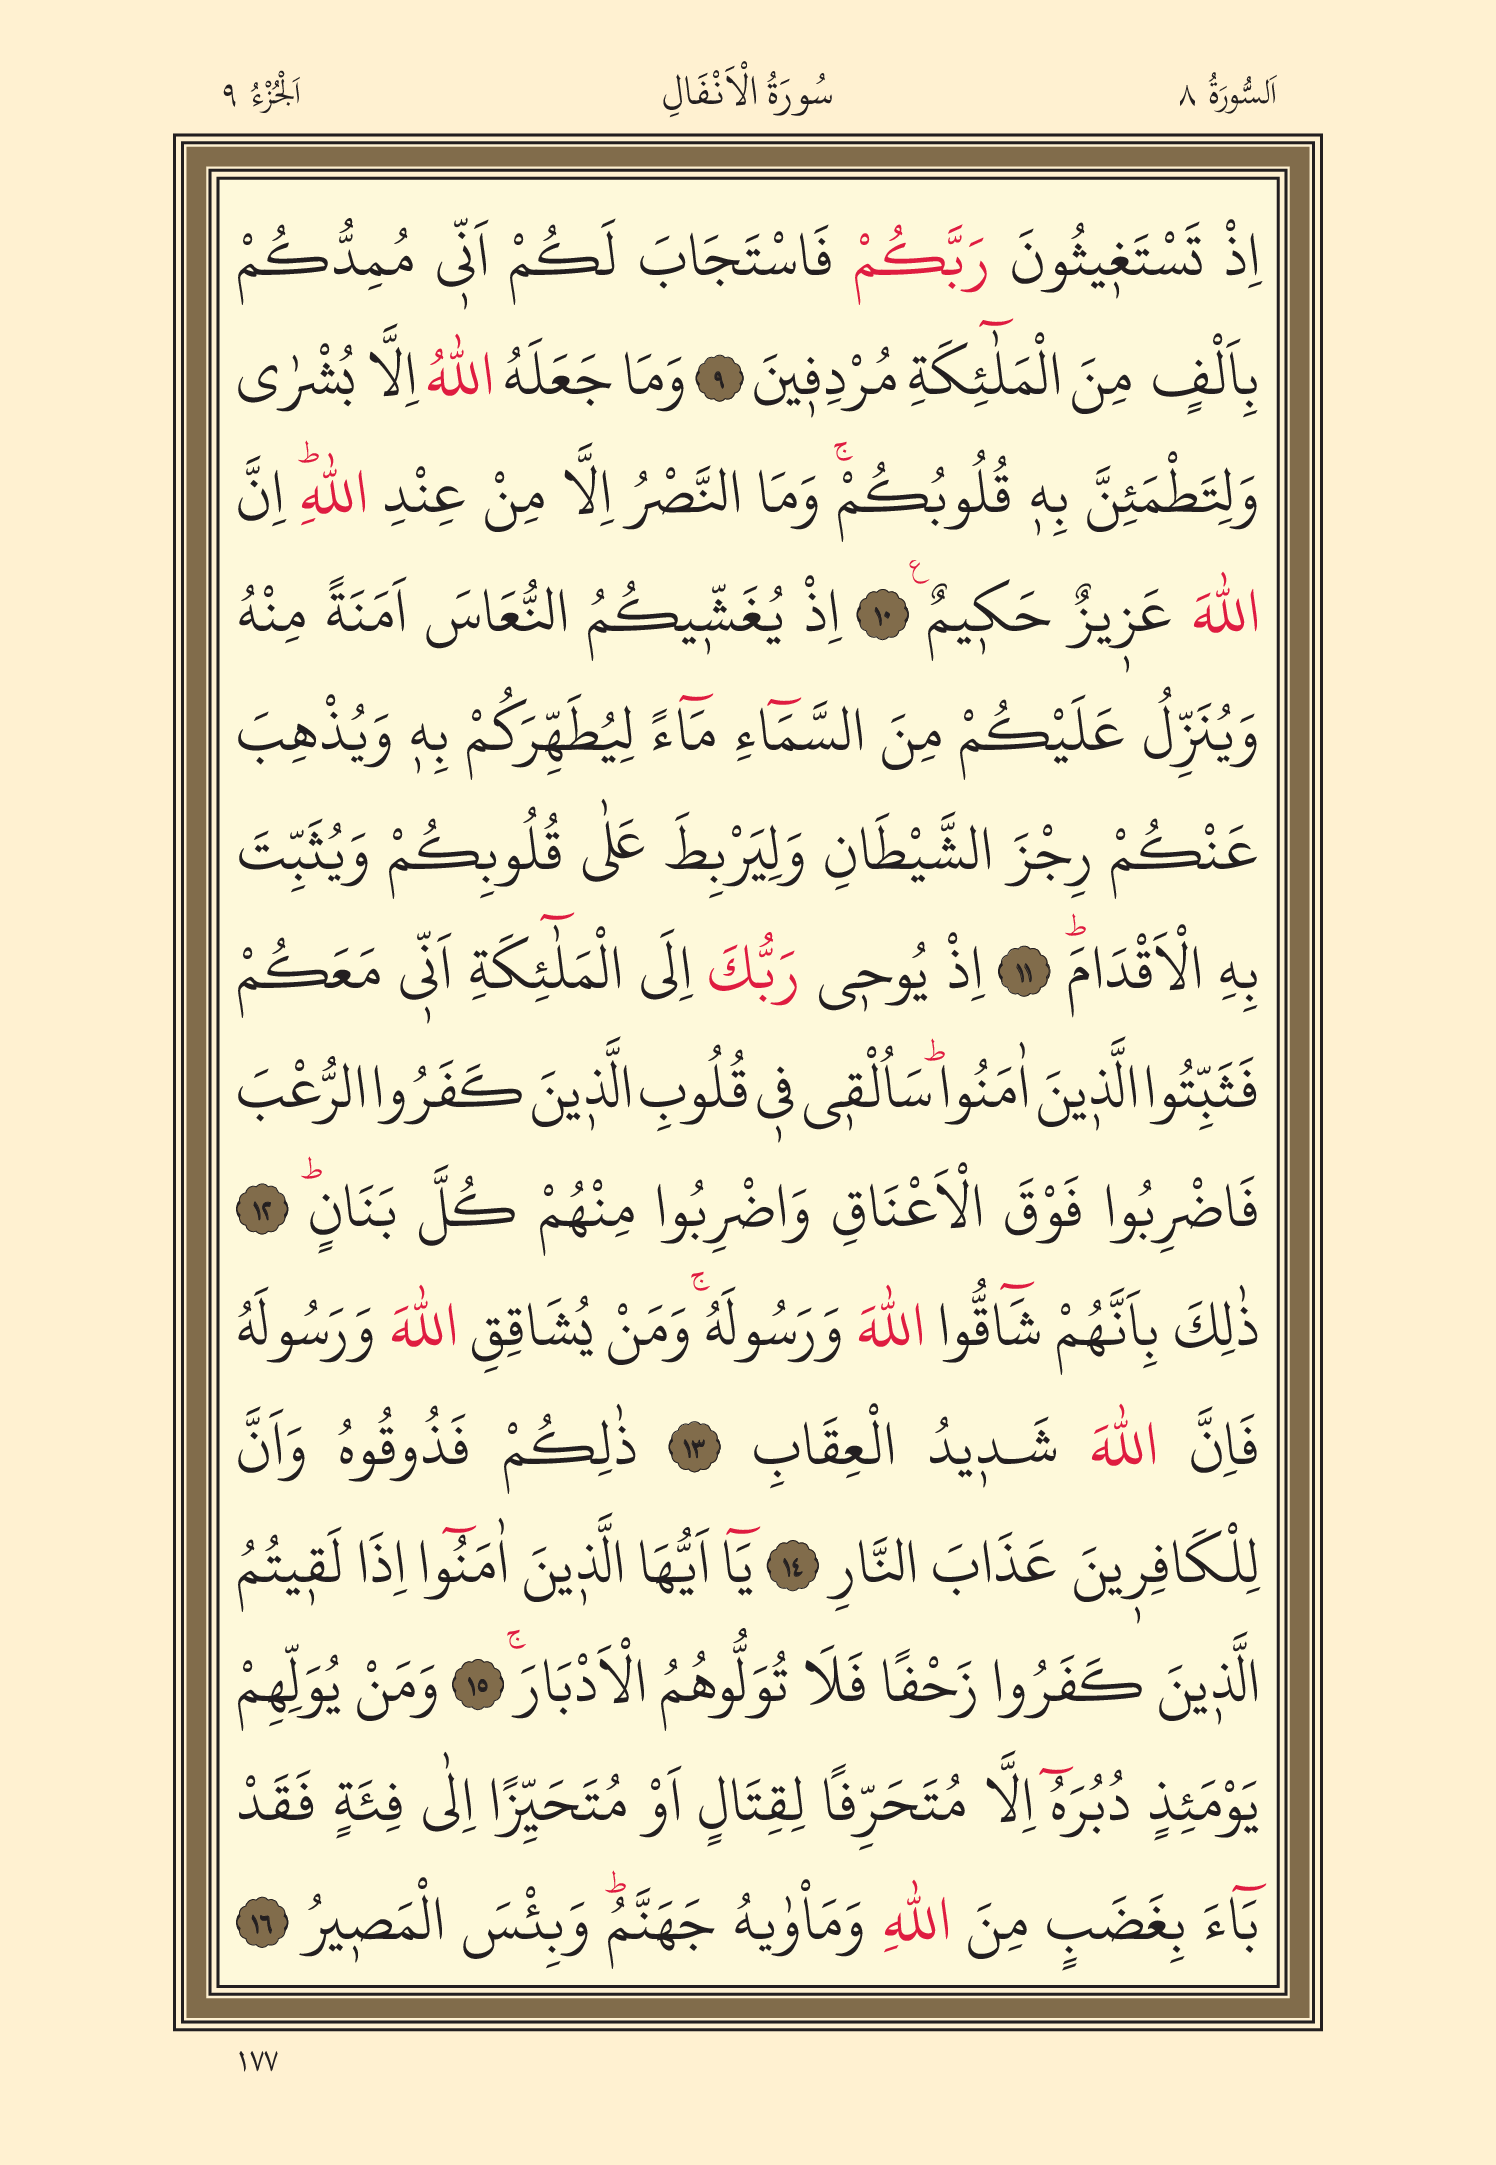 اَلسُّورَةُ ٨ سُورَةُ الْاَنْفَالِ اَلْجُزْءُ ٩
اِذْ تَسْتَغٖيثُونَ رَبَّكُمْ فَاسْتَجَابَ لَكُمْ اَنّٖى مُمِدُّكُمْ
بِاَلْفٍ مِنَ الْمَلٰٓئِكَةِ مُرْدِفٖينَ ﴿٩﴾ وَمَا جَعَلَهُ اللّٰهُ اِلَّا بُشْرٰى
وَلِتَطْمَئِنَّ بِهٖ قُلُوبُكُمْۚ وَمَا النَّصْرُ اِلَّا مِنْ عِنْدِ اللّٰهِؕ اِنَّ
اللّٰهَ عَزٖيزٌ حَكٖيمٌࣖ ﴿١٠﴾ اِذْ يُغَشّٖيكُمُ النُّعَاسَ اَمَنَةً مِنْهُ
وَيُنَزِّلُ عَلَيْكُمْ مِنَ السَّمَٓاءِ مَٓاءً لِيُطَهِّرَكُمْ بِهٖ وَيُذْهِبَ
عَنْكُمْ رِجْزَ الشَّيْطَانِ وَلِيَرْبِطَ عَلٰى قُلُوبِكُمْ وَيُثَبِّتَ
بِهِ الْاَقْدَامَؕ ﴿١١﴾ اِذْ يُوحٖى رَبُّكَ اِلَى الْمَلٰٓئِكَةِ اَنّٖى مَعَكُمْ
فَثَبِّتُوا الَّذٖينَ اٰمَنُواؕ سَاُلْقٖى فٖى قُلُوبِ الَّذٖينَ كَفَرُوا الرُّعْبَ
فَاضْرِبُوا فَوْقَ الْاَعْنَاقِ وَاضْرِبُوا مِنْهُمْ كُلَّ بَنَانٍؕ ﴿١٢﴾
ذٰلِكَ بِاَنَّهُمْ شَٓاقُّوا اللّٰهَ وَرَسُولَهُۚ وَمَنْ يُشَاقِقِ اللّٰهَ وَرَسُولَهُ
فَاِنَّ اللّٰهَ شَدٖيدُ الْعِقَابِ ﴿١٣﴾ ذٰلِكُمْ فَذُوقُوهُ وَاَنَّ
لِلْكَافِرٖينَ عَذَابَ النَّارِ ﴿١٤﴾ يَٓا اَيُّهَا الَّذٖينَ اٰمَنُٓوا اِذَا لَقٖيتُمُ
الَّذٖينَ كَفَرُوا زَحْفًا فَلَا تُوَلُّوهُمُ الْاَدْبَارَۚ ﴿١٥﴾ وَمَنْ يُوَلِّهِمْ
يَوْمَئِذٍ دُبُرَهُٓ اِلَّا مُتَحَرِّفًا لِقِتَالٍ اَوْ مُتَحَيِّزًا اِلٰى فِئَةٍ فَقَدْ
بَٓاءَ بِغَضَبٍ مِنَ اللّٰهِ وَمَاْوٰيهُ جَهَنَّمُؕ وَبِئْسَ الْمَصٖيرُ ﴿١٦﴾
١٧٧